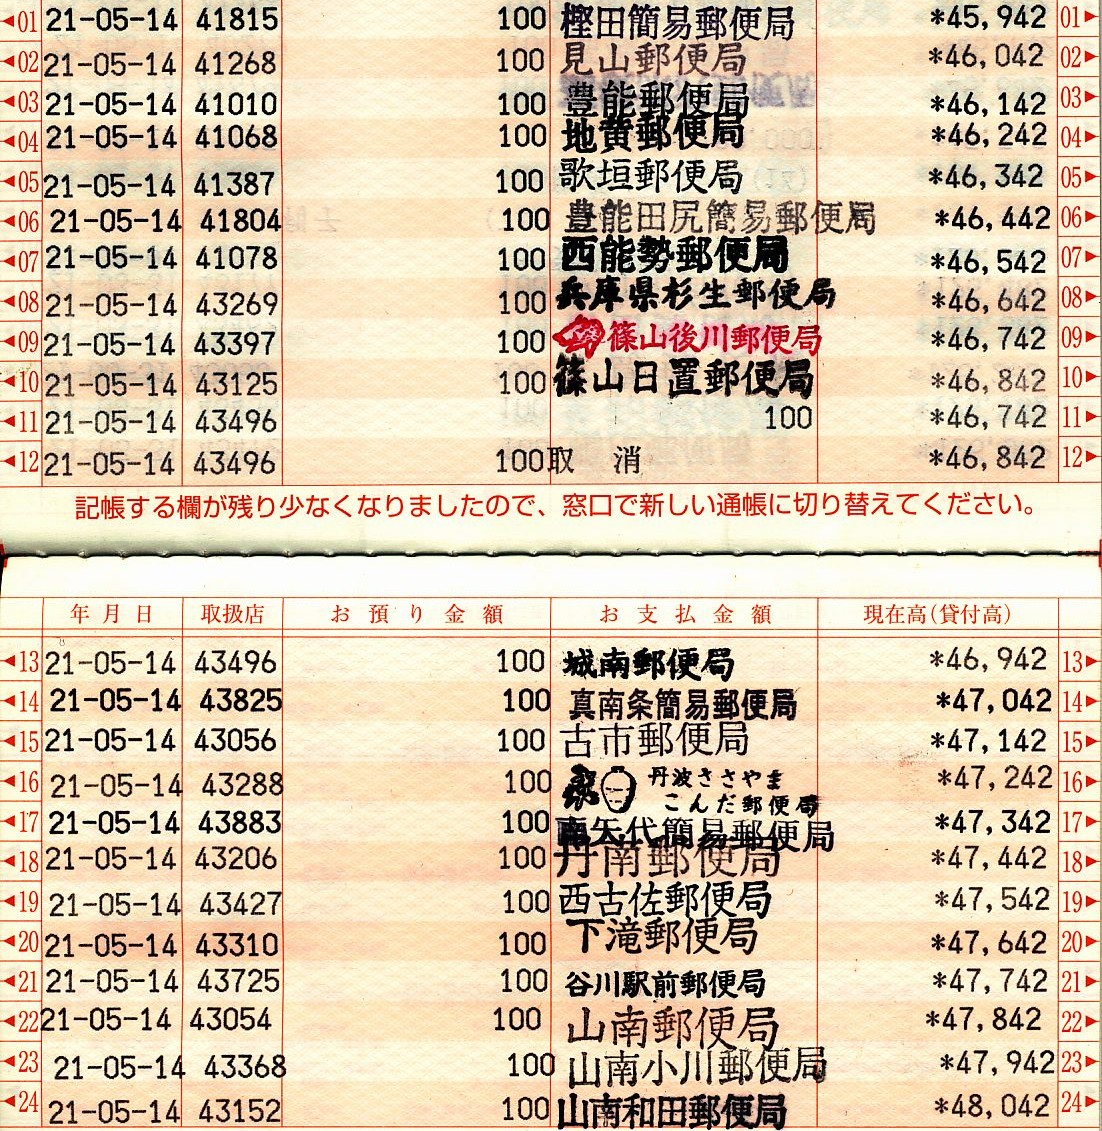 ◄01 21-05-14 41815 100 樫田簡易郵便局 *45,942 01►
◄02 21-05-14 41268 100 見山郵便局 *46,042 02►
◄03 21-05-14 41010 100 豊能郵便局 *46,142 03►
◄04 21-05-14 41068 100 地黄郵便局 *46,242 04►
◄05 21-05-14 41387 100 歌垣郵便局 *46,342 05►
◄06 21-05-14 41804 100 豊能田尻簡易郵便局 *46,442 06►
◄07 21-05-14 41078 100 西能勢郵便局 *46,542 07►
◄08 21-05-14 43269 100 兵庫県杉生郵便局 *46,642 08►
◄09 21-05-14 43397 100 篠山後川郵便局 *46,742 09►
◄10 21-05-14 43125 100 篠山日置郵便局 *46,842 10►
◄11 21-05-14 43496 100 *46,742 11►
◄12 21-05-14 43496 100取 消 *46,842 12►
記帳する欄が残り少なくなりましたので、窓口で新しい通帳に切り替えてください。
年月日 取扱店 お預り金額 お支払金額 現在高(貸付高)
◄13 21-05-14 43496 100 城南郵便局 *46,942 13►
◄14 21-05-14 43825 100 真南条簡易郵便局 *47,042 14►
◄15 21-05-14 43056 100 古市郵便局 *47,142 15►
◄16 21-05-14 43288 100 丹波ささやま *47,242 16►
こんだ郵便局
◄17 21-05-14 43883 100 南矢代簡易郵便局 *47,342 17►
◄18 21-05-14 43206 100 丹南郵便局 *47,442 18►
◄19 21-05-14 43427 100 西古佐郵便局 *47,542 19►
◄20 21-05-14 43310 100 下滝郵便局 *47,642 20►
◄21 21-05-14 43725 100 谷川駅前郵便局 *47,742 21►
◄22 21-05-14 43054 100 山南郵便局 *47,842 22►
◄23 21-05-14 43368 100 山南小川郵便局 *47,942 23►
◄24 21-05-14 43152 100 山南和田郵便局 *48,042 24►